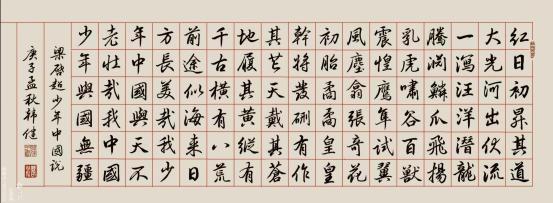 紅日初昇其道
大光河出伏流
一瀉汪洋潛龍
騰淵鱗爪飛揚
乳虎嘯谷百獸
震惶鷹隼試翼
風塵翕張奇花
初胎矞矞皇皇
幹將發硎有作
其芒天戴其蒼
地履其黃縱有
千古橫有八荒
前途似海來日
方長美哉我少
年中國與天不
老壯哉我中國
少年與國無疆
梁啓超少年中國說
庚子孟秋韩健